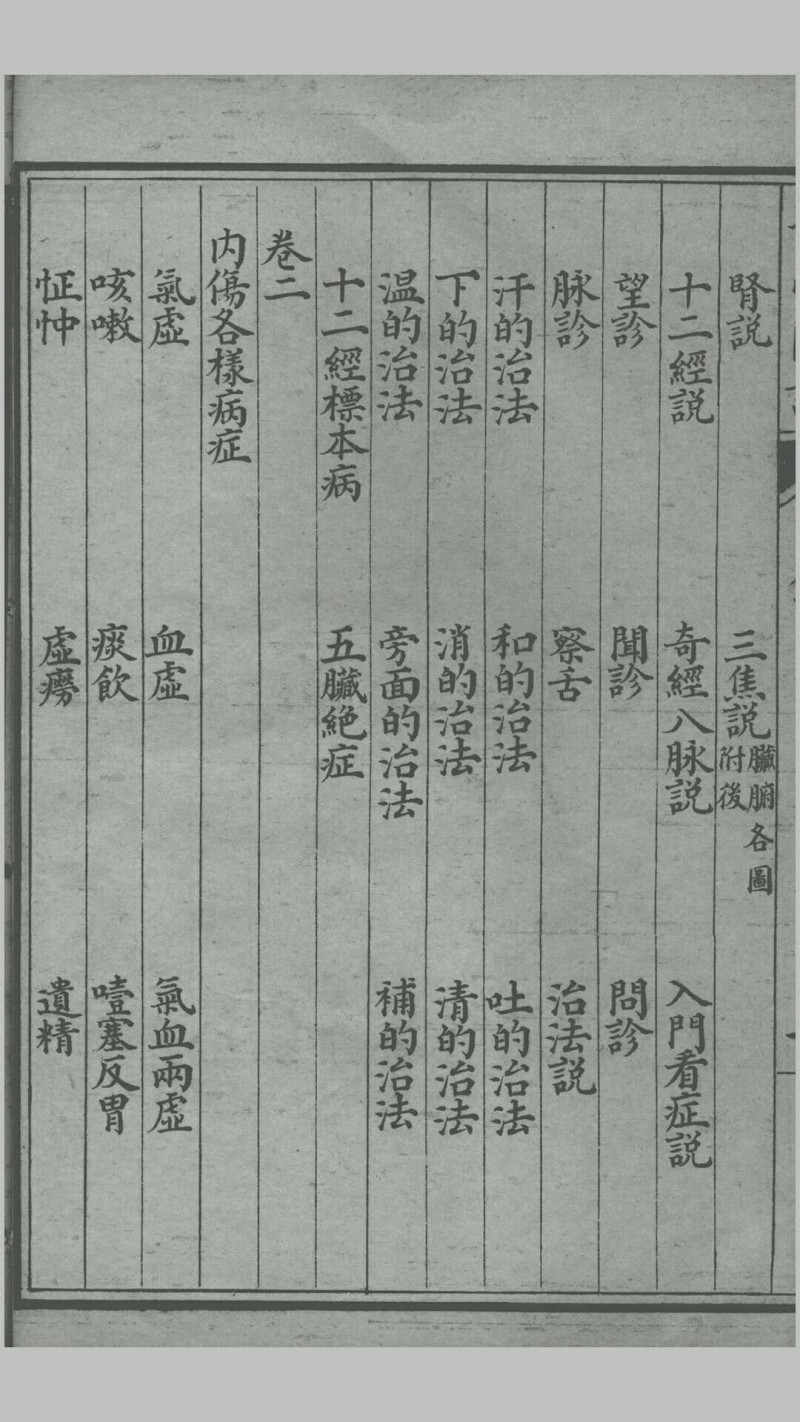 腎説 三焦説 臟腑各圖附後
十二經説 奇經八脉説 入門看症説
望診 聞診 問診
脉診 察舌 治法説
汗的治法 和的治法 吐的治法
下的治法 消的治法 清的治法
温的治法 旁面的治法 補的治法
十二經標本病 五臟絶症
卷二
内傷各樣病症
氣虛 血虛 氣血兩虛
咳嗽 痰飲 噎塞反胃
怔忡 虛癆 遺精